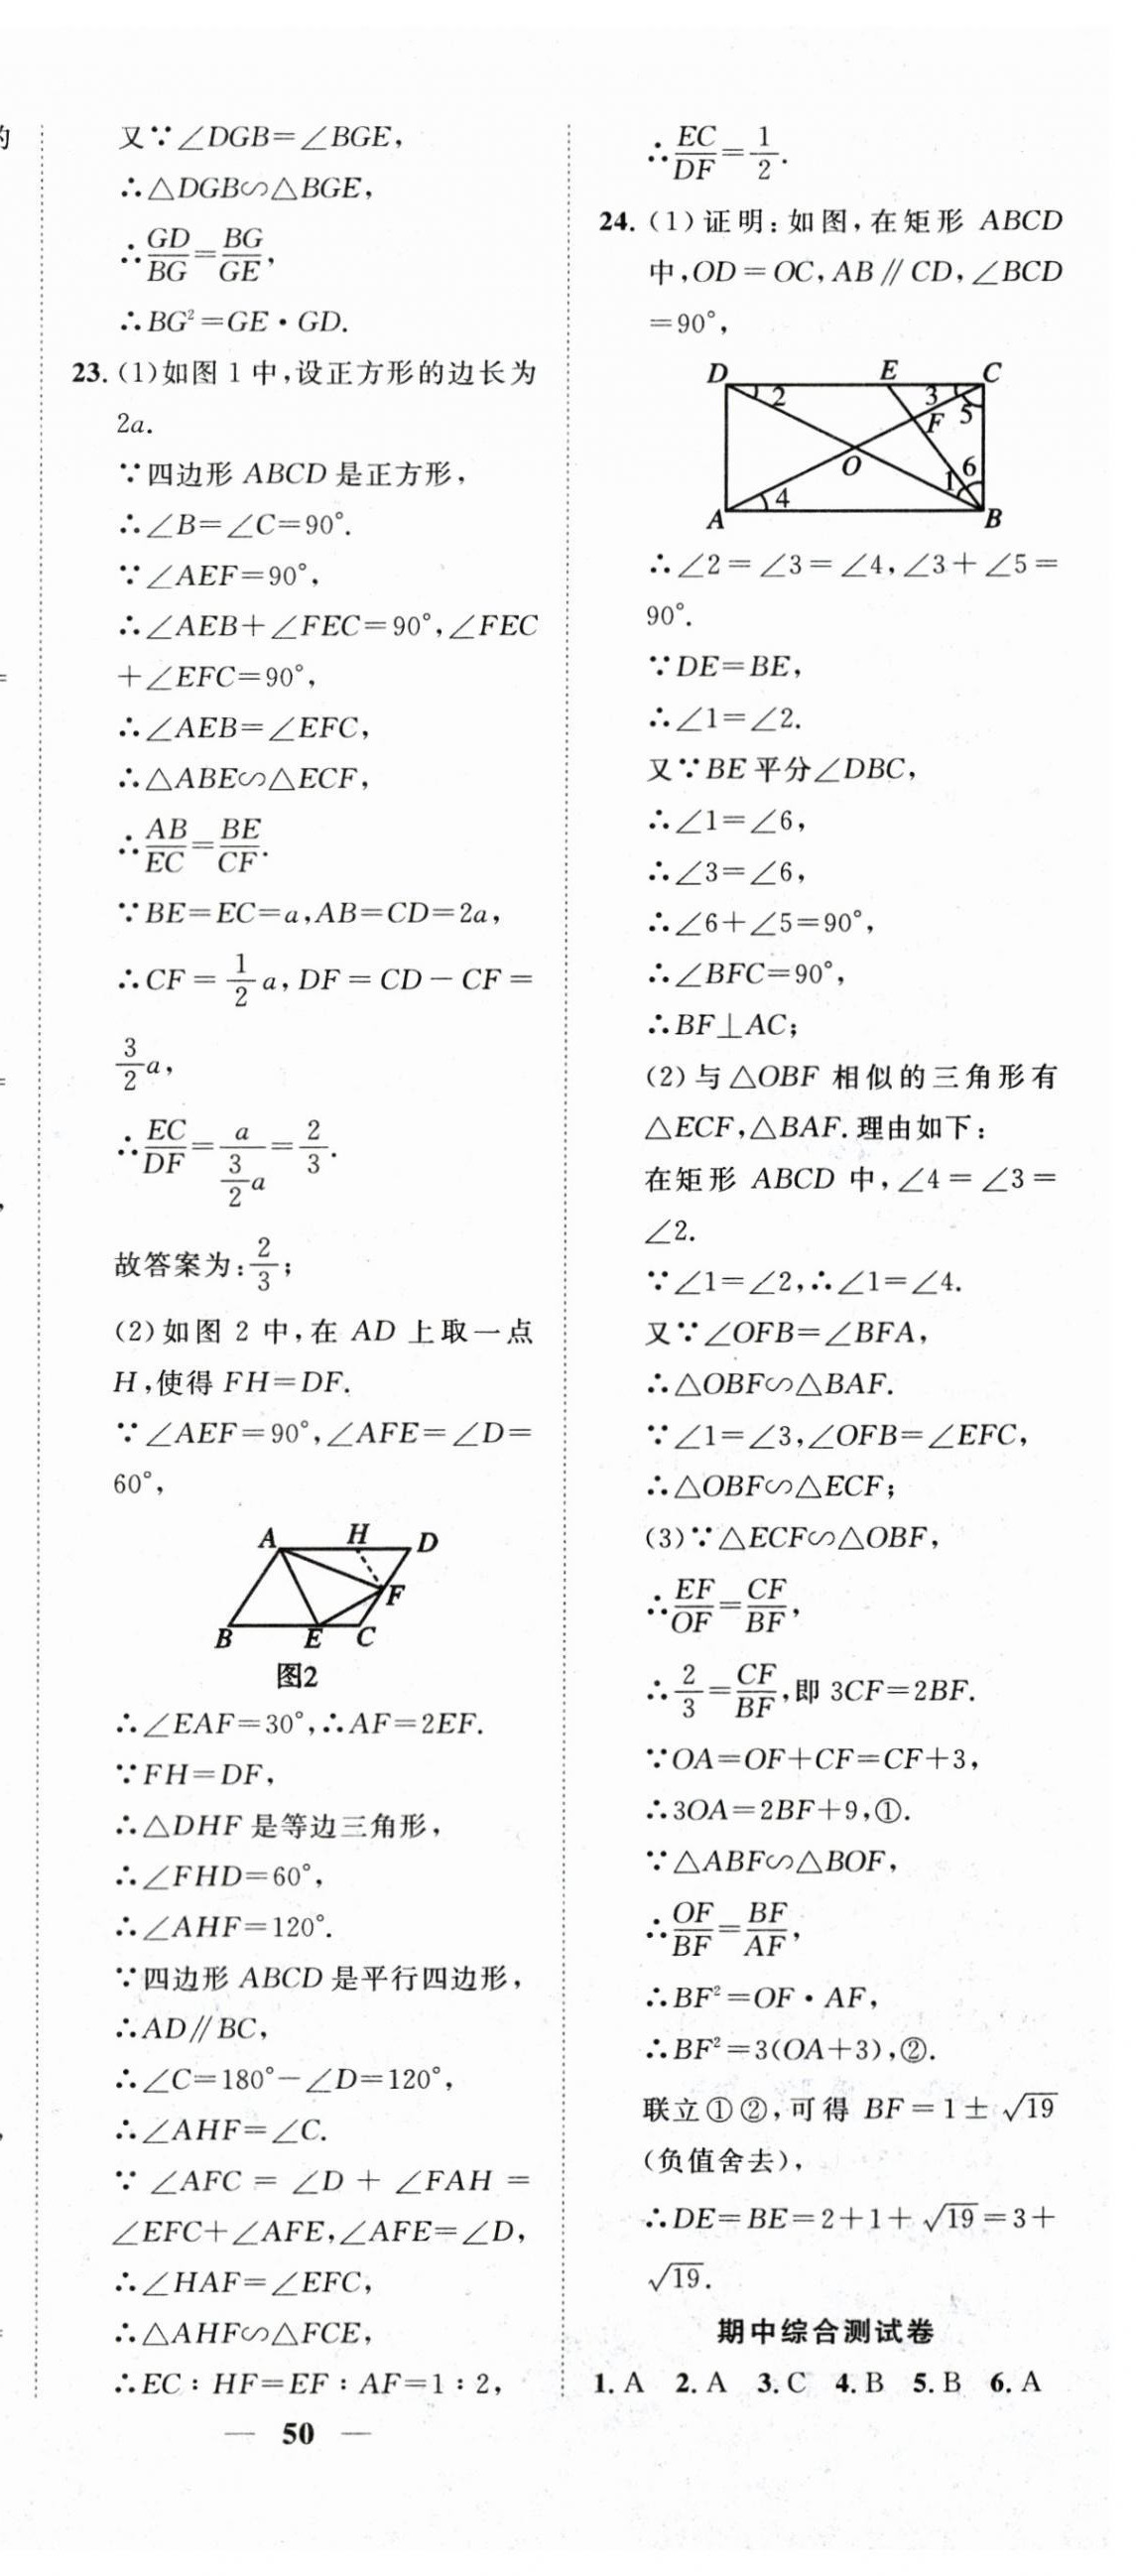 的
又∵∠DGB=∠BGE,
∴△DGB∽△BGE,
∴GD/BG=BG/GE,
∴BG²=GE·GD.
23.(1)如图1中,设正方形的边长为
2a.
∵四边形ABCD是正方形,
∴∠B=∠C=90°.
∵∠AEF=90°,
∴∠AEB+∠FEC=90°,∠FEC
+∠EFC=90°,
∴∠AEB=∠EFC,
∴△ABE∽△ECF,
∴AB/EC=BE/CF.
∵BE=EC=a,AB=CD=2a,
∴CF=1/2a,DF=CD-CF=
3/2a,
∴EC/DF=a/(3/2a)=2/3.
故答案为:2/3;
(2)如图2中,在AD上取一点
H,使得FH=DF.
∵∠AEF=90°,∠AFE=∠D=
60°,
A H D
F
B E C
图2
∴∠EAF=30°,∴AF=2EF.
∵FH=DF,
∴△DHF是等边三角形,
∴∠FHD=60°,
∴∠AHF=120°.
∵四边形ABCD是平行四边形,
∴AD∥BC,
∴∠C=180°-∠D=120°,
∴∠AHF=∠C.
∵∠AFC=∠D+∠FAH=
∠EFC+∠AFE,∠AFE=∠D,
∴∠HAF=∠EFC,
∴△AHF∽△FCE,
∴EC:HF=EF:AF=1:2,
— 50 —
∴EC/DF=1/2.
24.(1)证明:如图,在矩形ABCD
中,OD=OC,AB∥CD,∠BCD
=90°,
D E C
2 3 5
F
O
1 6
4
A B
∴∠2=∠3=∠4,∠3+∠5=
90°.
∵DE=BE,
∴∠1=∠2.
又∵BE平分∠DBC,
∴∠1=∠6,
∴∠3=∠6,
∴∠6+∠5=90°,
∴∠BFC=90°,
∴BF⊥AC;
(2)与△OBF相似的三角形有
△ECF,△BAF.理由如下:
在矩形ABCD中,∠4=∠3=
∠2.
∵∠1=∠2,∴∠1=∠4.
又∵∠OFB=∠BFA,
∴△OBF∽△BAF.
∵∠1=∠3,∠OFB=∠EFC,
∴△OBF∽△ECF;
(3)∵△ECF∽△OBF,
∴EF/OF=CF/BF,
∴2/3=CF/BF,即3CF=2BF.
∵OA=OF+CF=CF+3,
∴3OA=2BF+9,①.
∵△ABF∽△BOF,
∴OF/BF=BF/AF,
∴BF²=OF·AF,
∴BF²=3(OA+3),②.
联立①②,可得BF=1±√19
(负值舍去),
∴DE=BE=2+1+√19=3+
√19.
期中综合测试卷
1.A 2.A 3.C 4.B 5.B 6.A